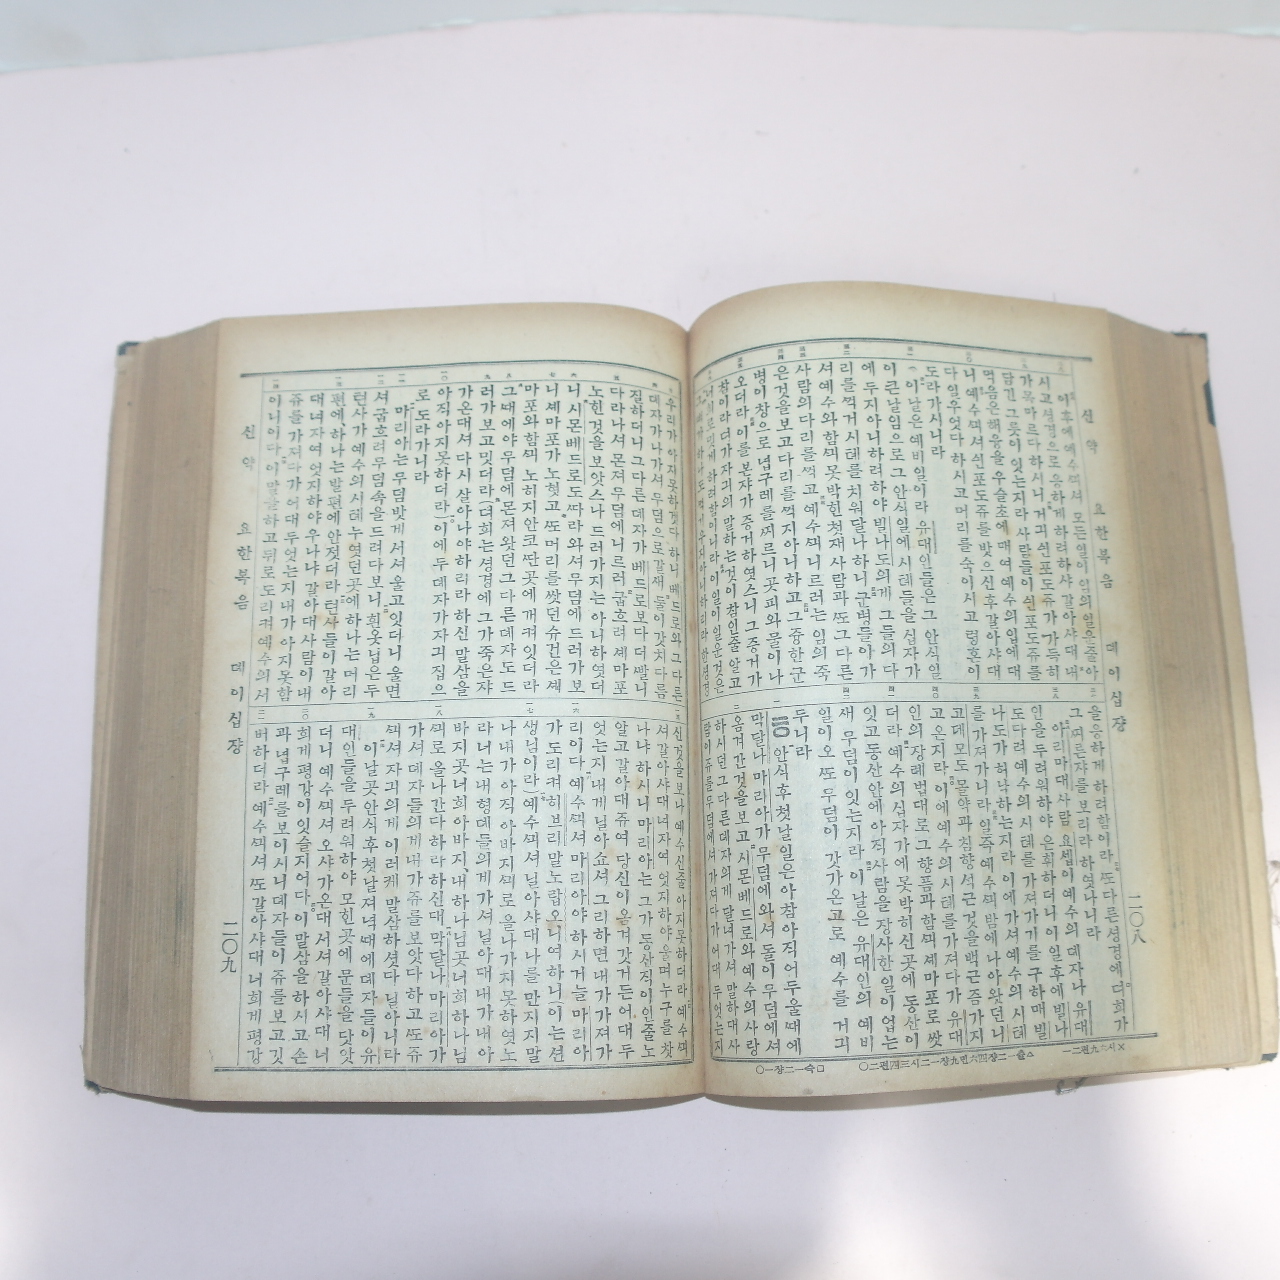 신약 요한복음 데이십쟝 二〇八
이후에예수씌셔모든일이임의일운줄아
시고셩경으로응하게하려하샤갈아샤대내
가목마르다하시니거긔쉰포도쥬가가득히
담긴그릇이잇는지라사람들이쉰포도쥬를
먹음은해융을우슬초에매여예수의입에대
니예수씌셔쉰포도쥬를밧으신후갈아샤대
다일우엇다하시고머리를숙이시고령혼이
도라가시니라
이날은예비일이라유대인들은그안식일
이큰날임으로그안식일에시톄들을십자가
에두지아니하려하야빌나도의게그들의다
리를꺽거시톄를치워달나하니군병들이가
셔예수와함씌못박힌첫재사람과또그다른
사람의다리를꺽고예수씌니르러는임의죽
은것을보고다리를꺽지아니하고그중한군
병이창으로녑구레를찌르니곳피와물이나
오더라이를본쟈가증거하엿스니그증거가
참이라뎌가자긔의말하는것이참인줄알고
너희로밋게하려함이니라이일이일운것은
을응하게하려함이라또다른셩경에뎌희가
그찌른쟈를보리라하엿나니라
아리마대사람요셉이예수의뎨자나유대
인을두려워하야은휘하더니이일후에빌나
도다려예수의시톄를가져가기를구하매빌
나도가허락하는지라이에가셔예수의시톄
를가져가니라일즉예수씌밤에나아왓던니
고데모도몰약과침향석근것을백근즘가지
고온지라이에예수의시톄를가져다가유대
인의장례법대로그향픔과함씌셰마포로쌋
더라예수의십자가에못박히신곳에동산이
잇고동산안에아직사람을장사한일이업는
새무덤이잇는지라이날은유대인의예비
일이오또무덤이갓가온고로예수를거긔
두니라
안식후첫날일은아참아직어두울때에
막달나마리아가무덤에와셔돌이무덤에셔
옴겨간것을보고시몬베드로와예수의사랑
하시던그다른뎨자의게달녀가셔말하대사
람이쥬를무덤에셔가져다가어대두엇는지
우리가아지못하겟다하니베드로와그다른
뎨자가나가셔무덤으로갈새둘이갓치다름
질하더니그다른뎨자가베드로보다더빨니
다라나셔몬져무덤에니르러굽흐려셰마포
노힌것을보앗스나드러가지는아니하엿더
니시몬베드로도따라와셔무덤에드러가보
니셰마포가노혓고또머리를쌋던슈건은셰
마포와함씌노히지안코딴곳에개켜잇더라
그때에야무덤에몬져왓던그다른뎨자도드
러가보고밋더라(뎌희는셩경에그가죽은쟈
가온대셔다시살아나야하리라하신말삼을
아직아지못하더라)이에두뎨자가자긔집으
로도라가니라
마리아는무덤밧게서셔울고잇더니울면
셔굽흐려무덤속을드려다보니흰옷닙은두
텬사가예수의시톄누엿던곳에하나는머리
편에하나는발편에안젓더라텬사들이갈아
대녀자여엇지하야우나냐갈아대사람이내
쥬를가져다가어대두엇는지내가아지못함
이니이다이말을하고뒤로도리켜예수의서
신것을보나예수신줄아지못하더라예수씌
셔갈아샤대녀자여엇지하야울며누구를찻
나냐하시니마리아는그가동산직이인줄노
알고갈아대쥬여당신이옴겨갓거든어대두
엇는지내게닐아쇼셔그리하면내가가져가
리이다예수씌셔마리아야하시거늘마리아
가도리켜히브리말노랍오니여하니(이는션
생님이라)예수씌셔닐아샤대나를만지지말
나내가아직아바지씌로올나가지못하엿노
라너는내형뎨들의게가셔닐아대내가내아
바지곳너희아바지내하나님곳너희하나님
씌로올나간다하라하신대막달나마리아가
가셔뎨자들의게내가쥬를보앗다하고또쥬
씌셔자긔의게이러케말삼하셧다닐아니라
이날곳안식후첫날져녁때에뎨자들이유
대인들을두려워하야모힌곳에문들을닷앗
더니예수씌셔오샤가온대서셔갈아샤대너
희게평강이잇슬지어다이말삼을하시고손
과녑구레를보이시니뎨자들이쥬를보고깃
버하더라예수씌셔또갈아샤대너희게평강
신약 요한복음 데이십쟝 二〇九